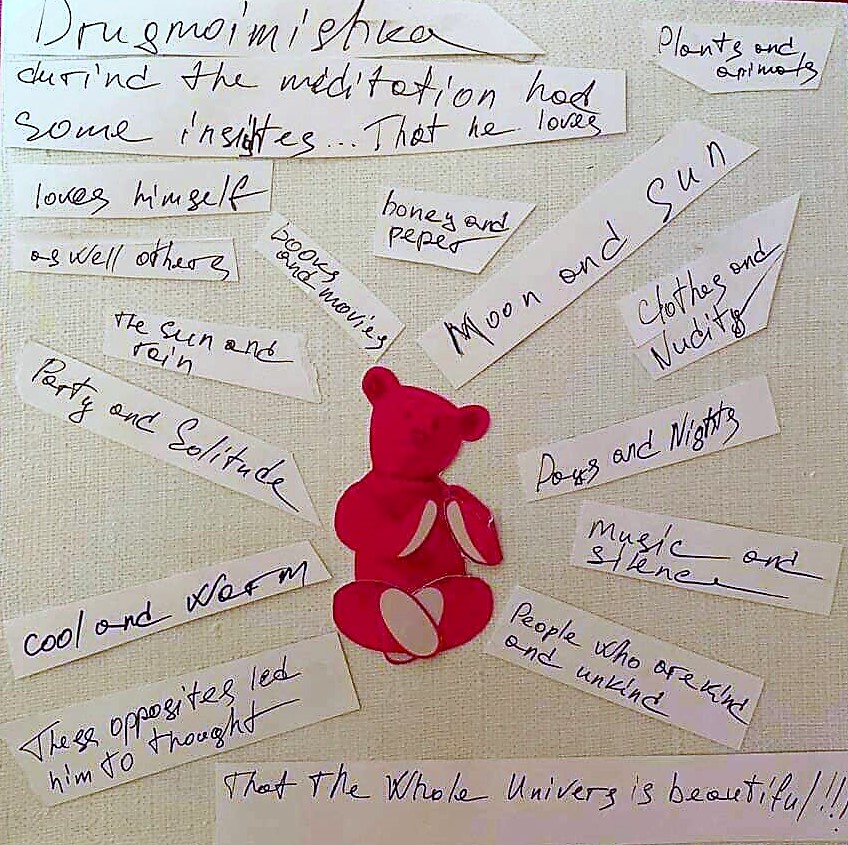 Drugmoimishka
durind the meditation had
some insigtes... That he loves
Plants and
animals
loves himself
as well others
books
and movies
honey and
peper
Moon and Sun
Clothes and
Nudity
The sun and
rain
Party and Solitude
Days and Nights
music and
silence
cool and warm
People who are kind
and unkind
These opposites led
him to thought
That The Whole Univers is beautiful!!!